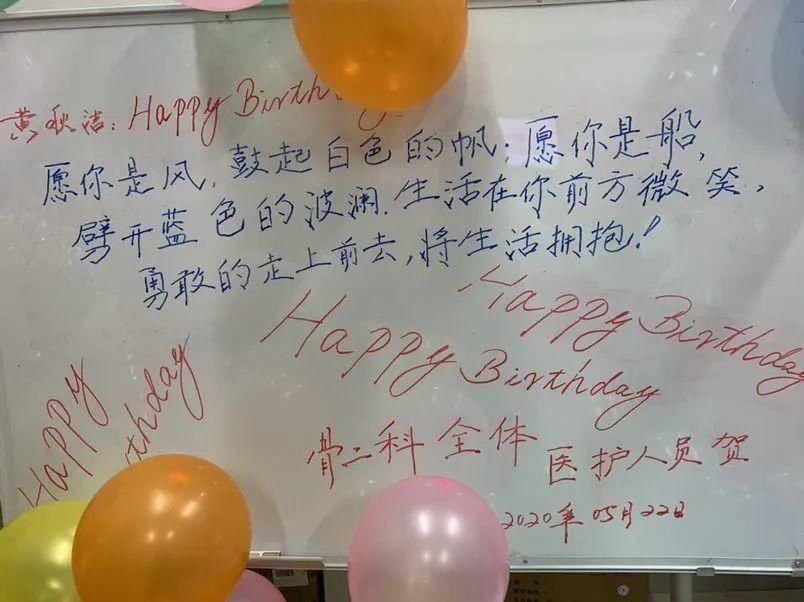 黄秋洁: Happy Birthday
愿你是风,鼓起白色的帆;愿你是船,
劈开蓝色的波澜.生活在你前方微笑,
勇敢的走上前去,将生活拥抱!
Happy Birthday
Happy Birthday
Happy
骨二科全体医护人员贺
2020年05月22日